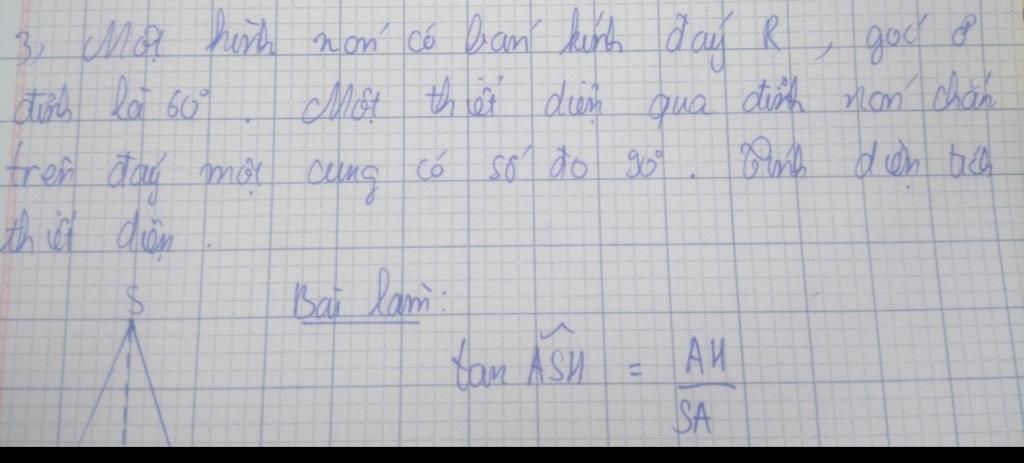 3, Một hình nón có bán kính đáy R, góc ở
đỉnh là 60°. Một thiết diện qua đỉnh nón chắn
trên đáy một cung có số đo 90°. Tính diện tích
thiết diện.
S
Bài làm:
tan ASH = AH
SA